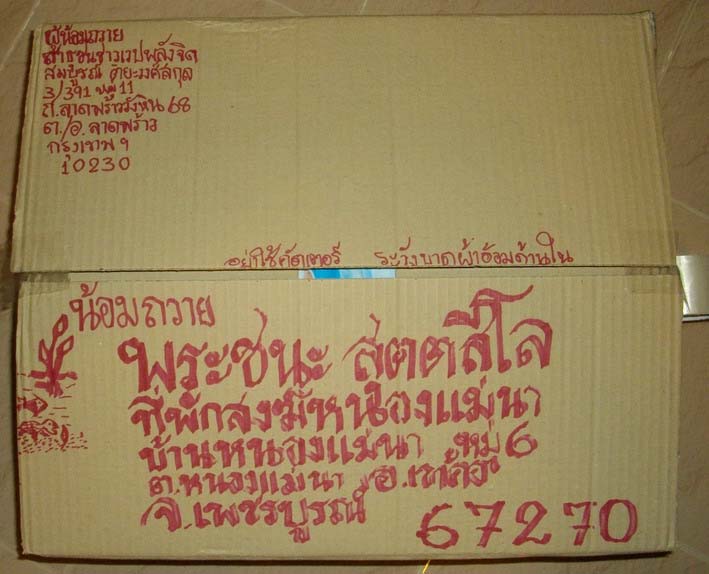 ผู้น้อมถวาย
สาธุชนชาวเวปพลังจิต
สมบูรณ์
3/391 หมู่ 11
ถ.ลาดพร้าววังหิน 68
ต./อ. ลาดพร้าว
กรุงเทพฯ
10230
อย่าใช้คัตเตอร์ ระวังบาดผ้าอ้อมด้านใน
น้อมถวาย
พระชนะ
ที่พักสงฆ์หนองแม่นา
บ้านหนองแม่นา หมู่ 6
ต.หนองแม่นา อ.เขาค้อ
จ.เพชรบูรณ์ 67270